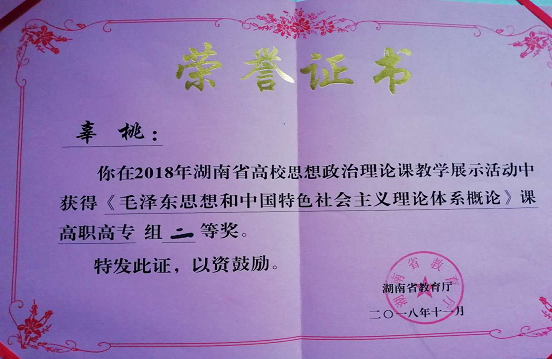 荣誉证书
辜桃：
你在2018年湖南省高校思想政治理论课教学展示活动中
获得《毛泽东思想和中国特色社会主义理论体系概论》课
高职高专 组 二 等奖。
特发此证，以资鼓励。
湖南省教育厅
湖南省教育厅
二〇一八年十一月